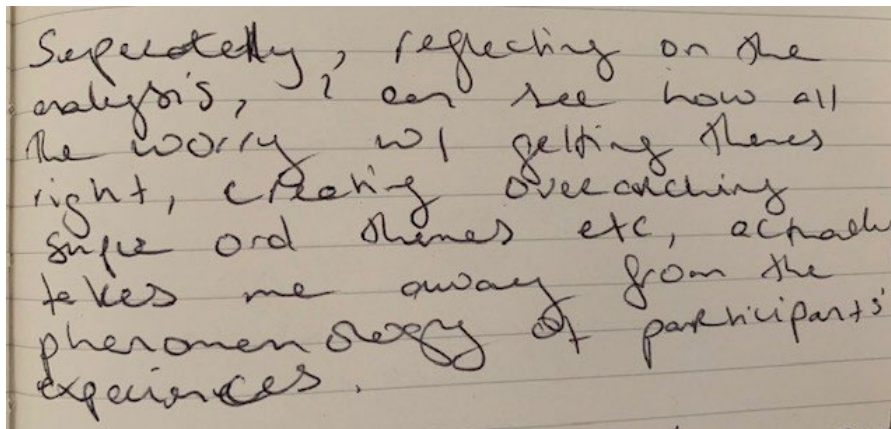 Seperately, reflecting on the
analysis, I can see how all
the worry w/ getting themes
right, creating overarching
super ord themes etc, actually
takes me away from the
phenomenology of participants'
experiences.